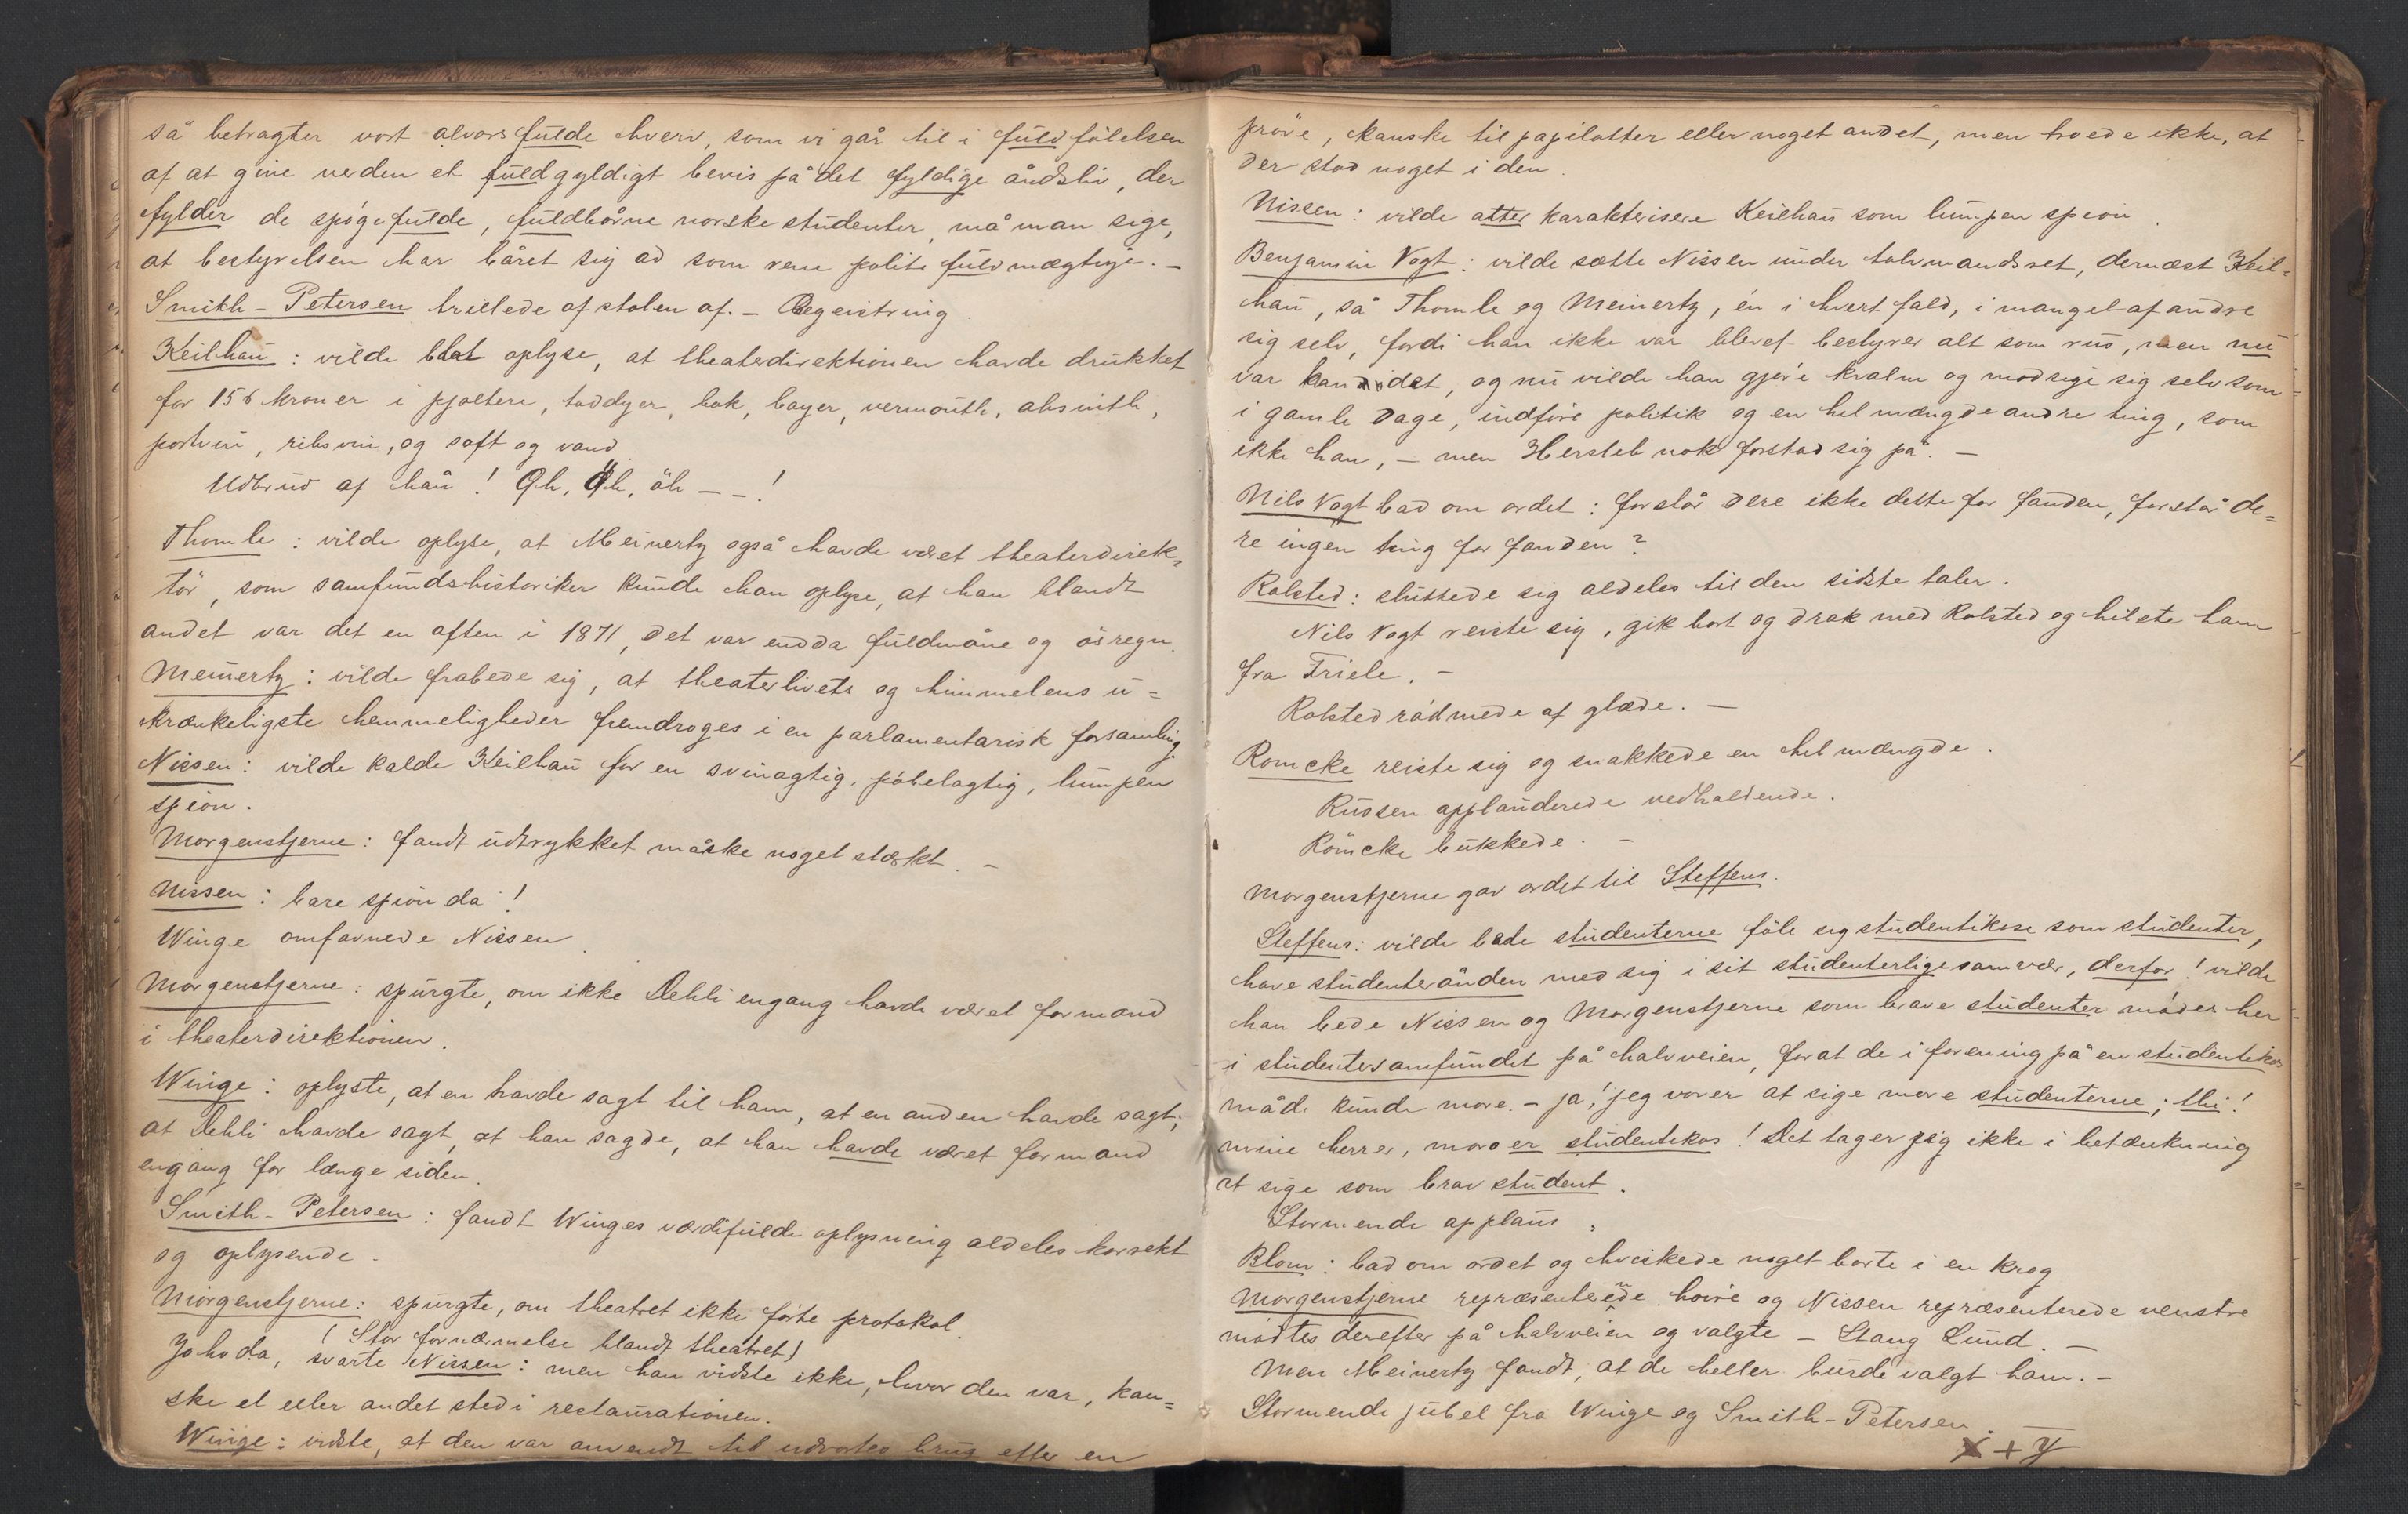 så betragter vort alvorsfulde hverv, som vi går til i fuldfølelsen
af at give verden et fuldgyldigt bevis på det fyldige åndsliv, der
fylder de spøgefulde, fuldbårne norske studenter, må man sige,
at bestyrelsen har båret sig ad som rene politifuldmægtige. –
Smith-Petersen trillede af stolen af. – Begeistring.
Keilhau: vilde blot oplyse, at theaterdirektionen havde drukket
for 156 kroner i pjoltere, toddyer, bok, bayer, vermouth, absinth,
portvin, ribsvin, og saft og vand.
Udbrud af hån! Oh, Öh, öh – –!
Thomle: vilde oplyse, at Meinertz også havde været theaterdirek=
tör, som samfundshistoriker kunde han oplyse, at han blandt
andet var det en aften i 1871, det var endda fuldmåne og ösregn.
Meinertz: vilde frabede sig, at theaterlivets og himmelens u=
krænkeligste hemmeligheder fremdroges i en parlamentarisk forsamling.
Nissen: vilde kalde Keilhau for en svinagtig, pöbelagtig, lumpen
spion.
Morgenstjerne: fandt udtrykket måske noget stærkt. –
Nissen: bare spion da!
Winge omfavnede Nissen.
Morgenstjerne: spurgte, om ikke Dehli engang havde været formand
i theaterdirektionen.
Winge: oplyste, at en havde sagt til ham, at en anden havde sagt,
at Dehli havde sagt, at han sagde, at han havde været formand
engang for længe siden.
Smith-Petersen: fandt Winges værdifulde oplysning aldeles korrekt
og oplysende.
Morgenstjerne: spurgte, om theatret ikke förte protokol.
(Stor fornærmelse blandt theatret)
Jo ho da, svarte Nissen: men han vidste ikke, hvor den var, kan=
ske et eller andet sted i restaurationen.
Winge: vidste, at den var anvendt til udvortes brug efter en
pröve, kanske til papilotter eller noget andet, men troede ikke, at
der stod noget i den.
Nissen: vilde atter karakterisere Keilhau som lumpen spion.
Benjamin Vogt: vilde sætte Nissen under tolvmandsret, dernæst Keil=
hau, så Thomle og Meinertz, én i hvert fald, i mangel af andre
sig selv, fordi han ikke var blevet bestyrer alt som rus, men nu
var kandidat, og nu vilde han gjöre kvalm og modsige sig selv som
i gamle dage, indföre politik og en hel mængde andre ting, som
ikke han, – men Hersleb nok forstod sig på. –
Nils Vogt bad om ordet: forstår dere ikke dette for fanden, forstår de=
re ingen ting for fanden?
Rolsted: sluttede sig aldeles til den sidste taler.
Nils Vogt reiste sig, gik bort og drak med Rolsted og hilste ham
fra Friele. –
Rolsted rödmede af glæde. –
Romcke reiste sig og snakkede en hel mængde.
Russen applauderede vedholdende.
Römcke bukkede. –
Morgenstjerne gav ordet til Steffens.
Steffens: vilde bede studenterne föle sig studentikose som studenter,
have studenterånden med sig i sit studenterlige samvær, derfor! vilde
han bede Nissen og Morgenstjerne som brave studenter mödes her
i studentersamfundet på halvveien, forat de i forening på en studentikos
måde kunde more – ja! jeg vover at sige more studenterne; thi!
mine herrer, moro er studentikos! Det tager jeg ikke i betænkning
at sige som brav student.
Stormende applaus.
Blom: bad om ordet og hviskede noget borte i en krog
Morgenstjerne repræsenterende höire og Nissen repræsenterede venstre
mödtes derefter på halvveien og valgte – Stang Lund. –
Men Meinertz fandt, at de heller burde valgt ham. –
Stormende jubel fra Winge og Smith-Petersen.
x + y